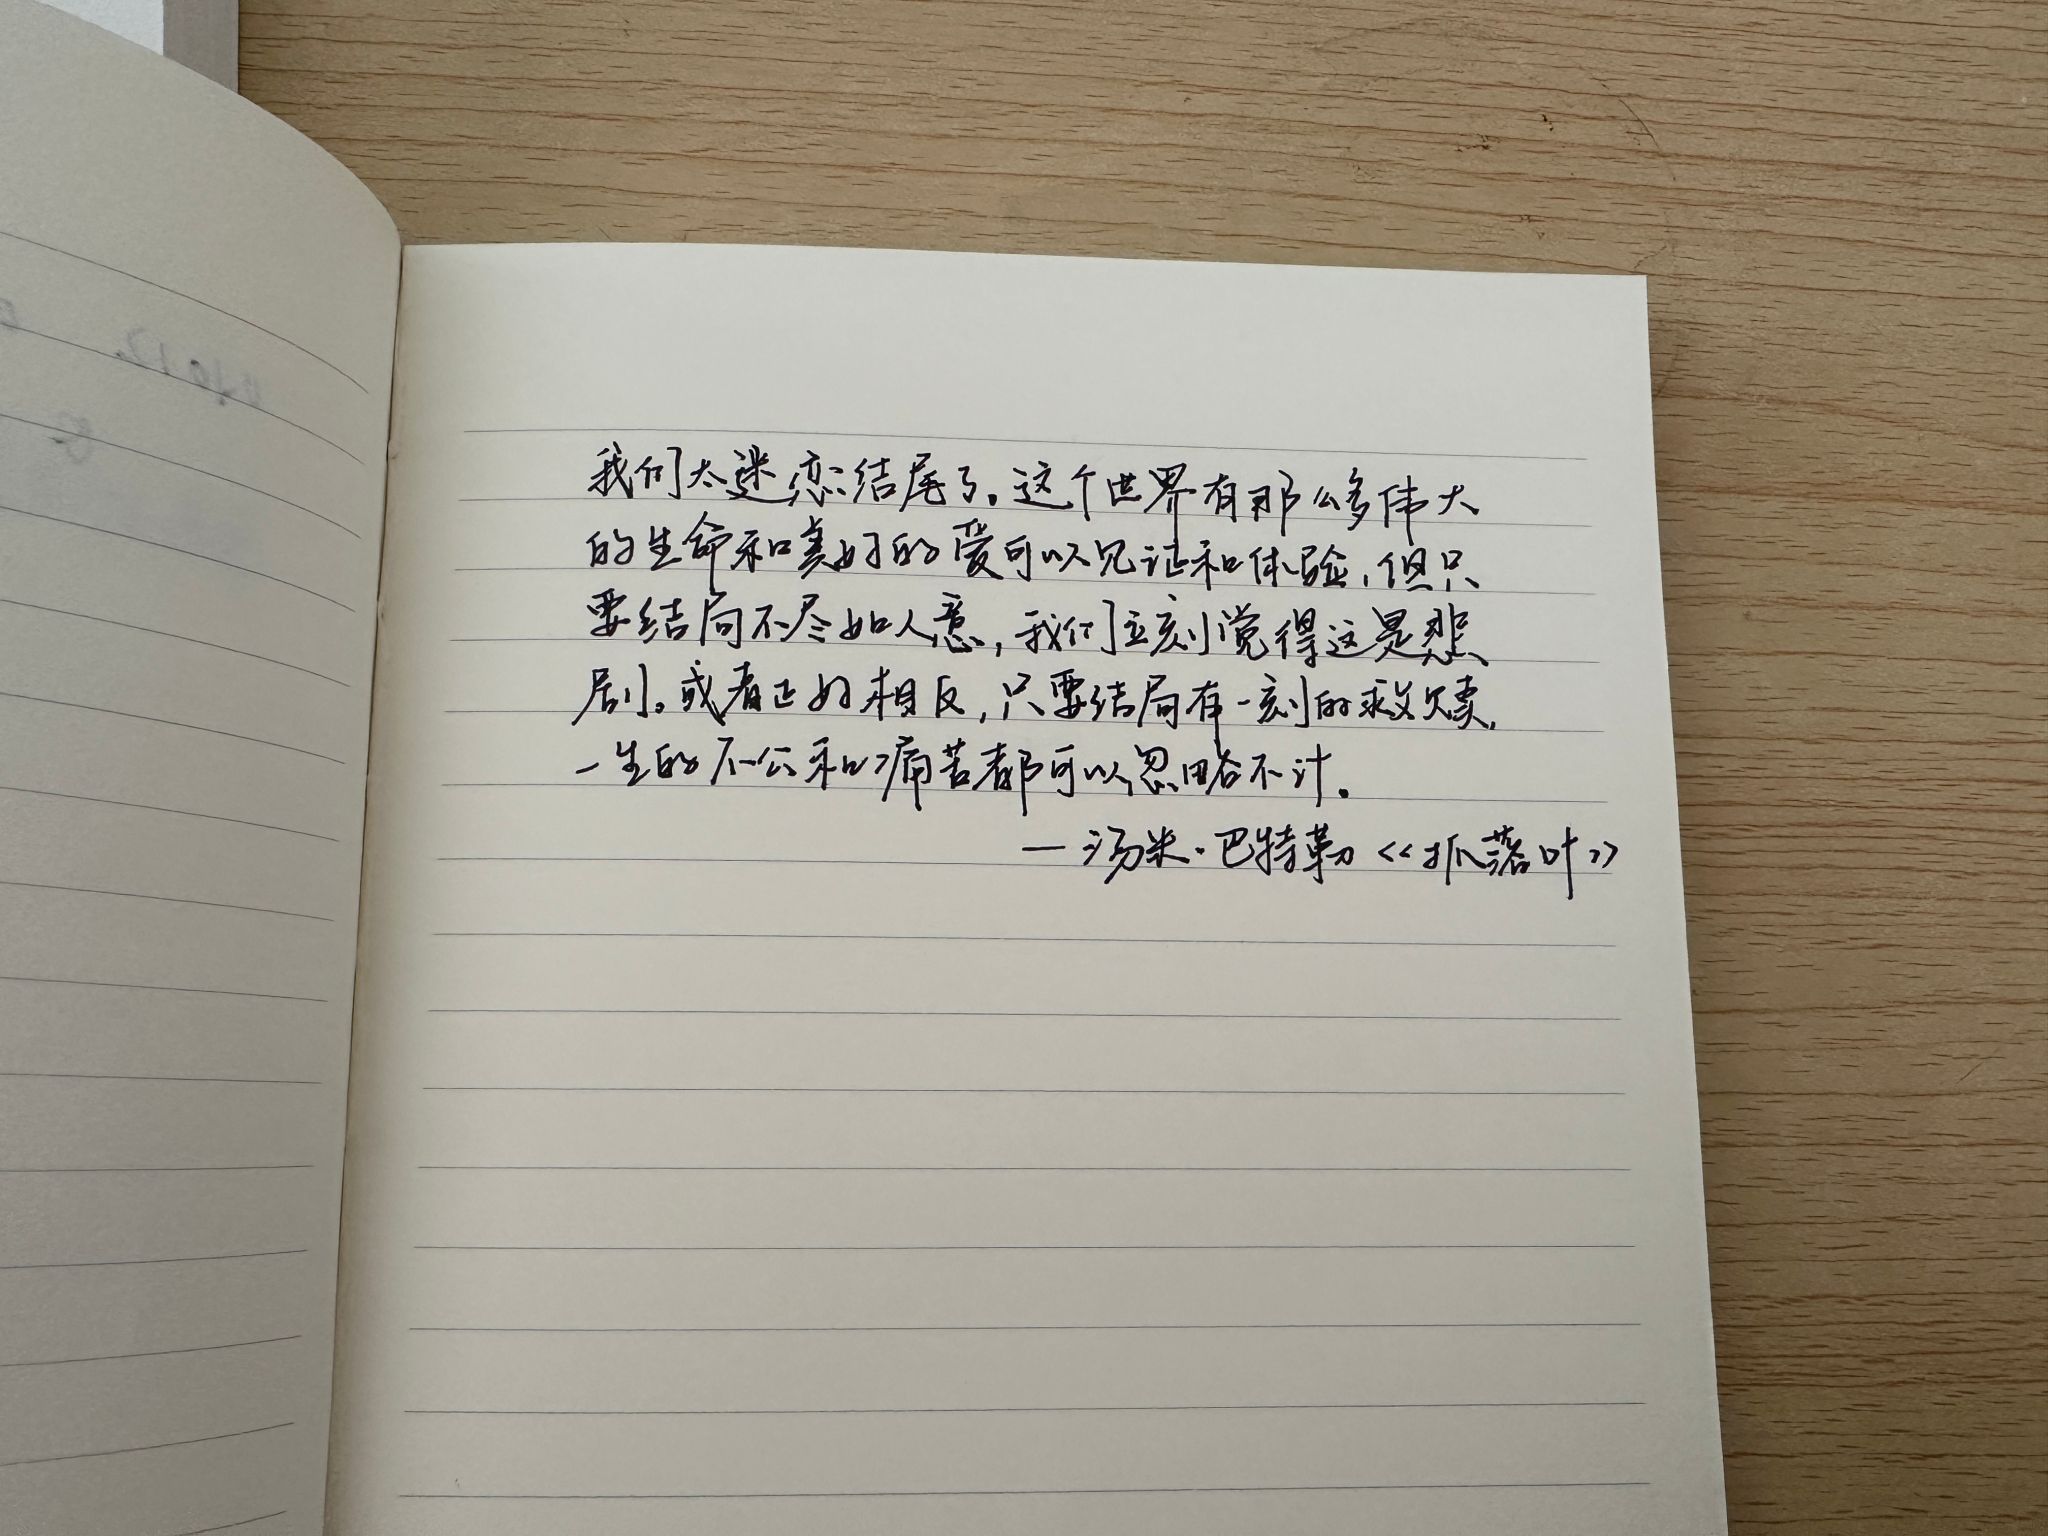 我们太迷恋结尾了。这个世界有那么多伟大
的生命和美好的爱可以见证和体验,但只
要结局不尽如人意,我们立刻觉得这是悲
剧。或者正好相反,只要结局有一刻的救赎,
一生的不公和痛苦都可以忽略不计。
—汤米·巴特勒《抓落叶》